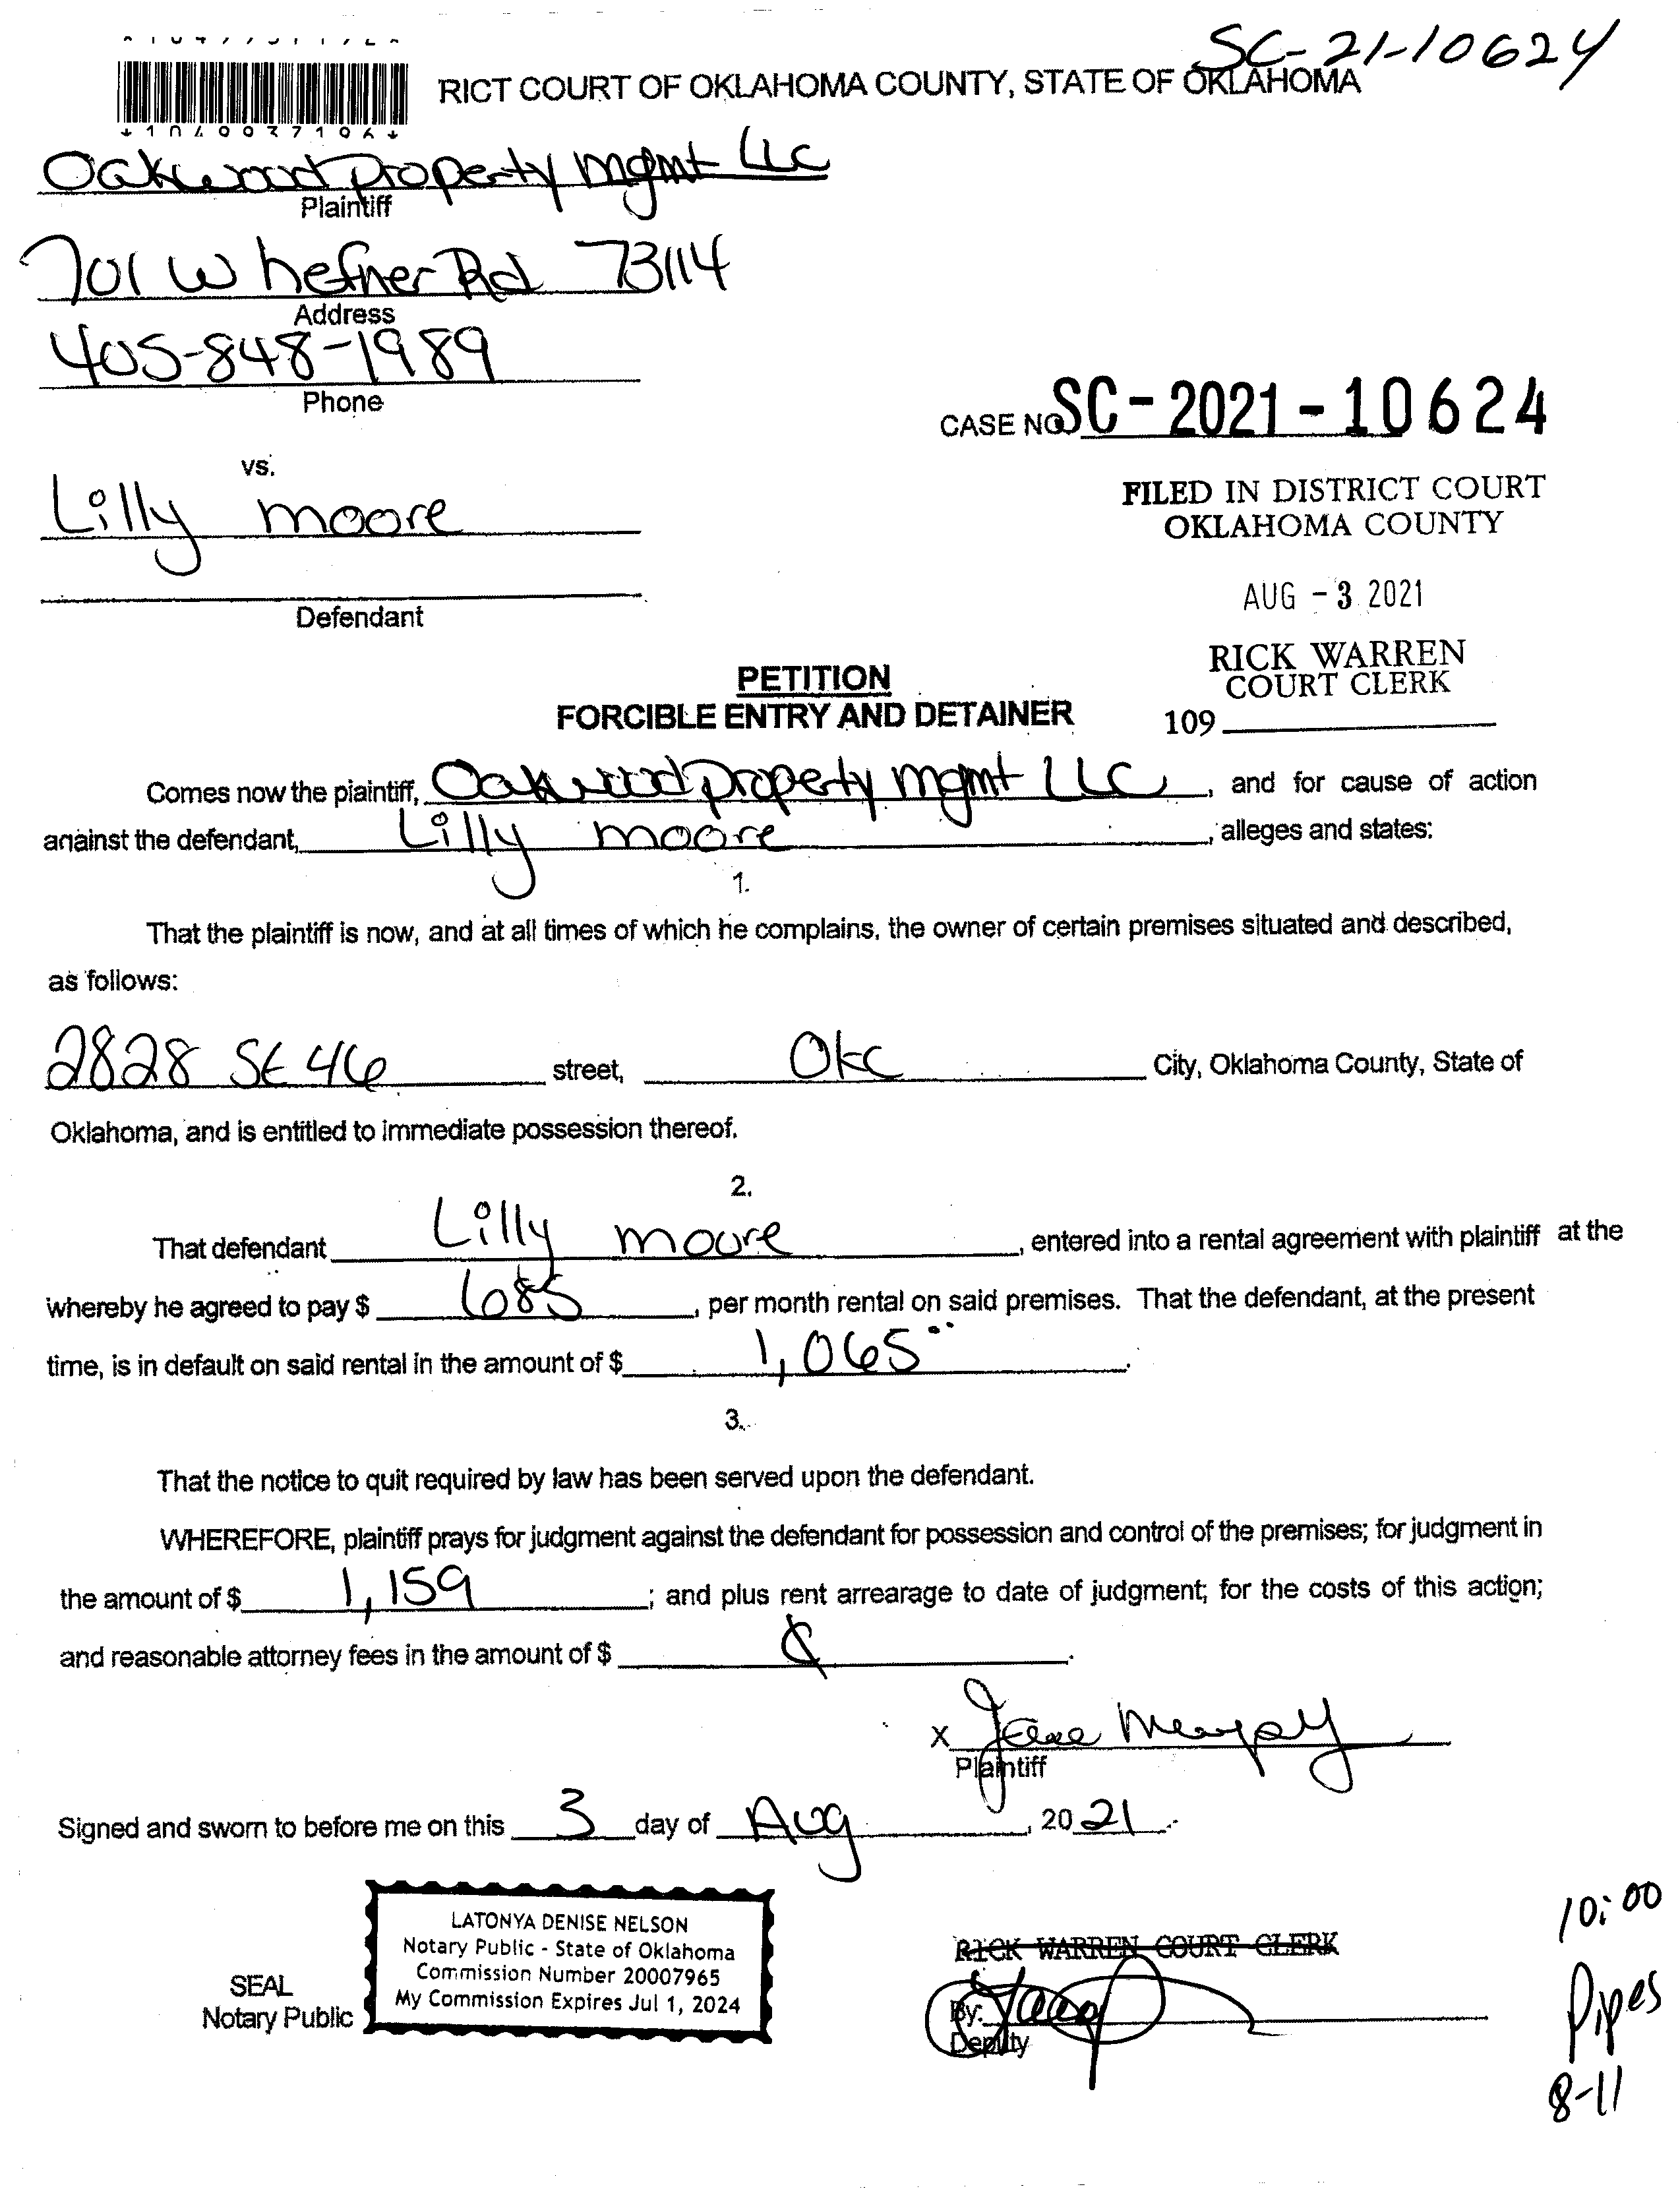 SC-21-10624
RICT COURT OF OKLAHOMA COUNTY, STATE OF OKLAHOMA
Oakwood property mgmt LLC
Plaintiff
701 W hefner Rd 73114
Address
405-848-1989
Phone
CASE NO. SC-2021-10624
vs.
Lilly moore
Defendant
FILED IN DISTRICT COURT
OKLAHOMA COUNTY
AUG -3 2021
RICK WARREN
COURT CLERK
109
PETITION
FORCIBLE ENTRY AND DETAINER
Comes now the plaintiff, Oakwood property mgmt LLC, and for cause of action
against the defendant, Lilly moore, alleges and states:
1.
That the plaintiff is now, and at all times of which he complains, the owner of certain premises situated and described,
as follows:
2828 SE 46 street, OKC City, Oklahoma County, State of
Oklahoma, and is entitled to immediate possession thereof.
2.
That defendant Lilly moore, entered into a rental agreement with plaintiff at the
whereby he agreed to pay $ 685, per month rental on said premises. That the defendant, at the present
time, is in default on said rental in the amount of $ 1,065.
3.
That the notice to quit required by law has been served upon the defendant.
WHEREFORE, plaintiff prays for judgment against the defendant for possession and control of the premises; for judgment in
the amount of $ 1,159; and plus rent arrearage to date of judgment; for the costs of this action;
and reasonable attorney fees in the amount of $
X
Plaintiff
Signed and sworn to before me on this 3 day of Aug, 2021.
LATONYA DENISE NELSON
Notary Public - State of Oklahoma
Commission Number 20007965
My Commission Expires Jul 1, 2024
SEAL
Notary Public
RICK WARREN COURT CLERK
By:
Deputy
10:00
Pipes
8-11